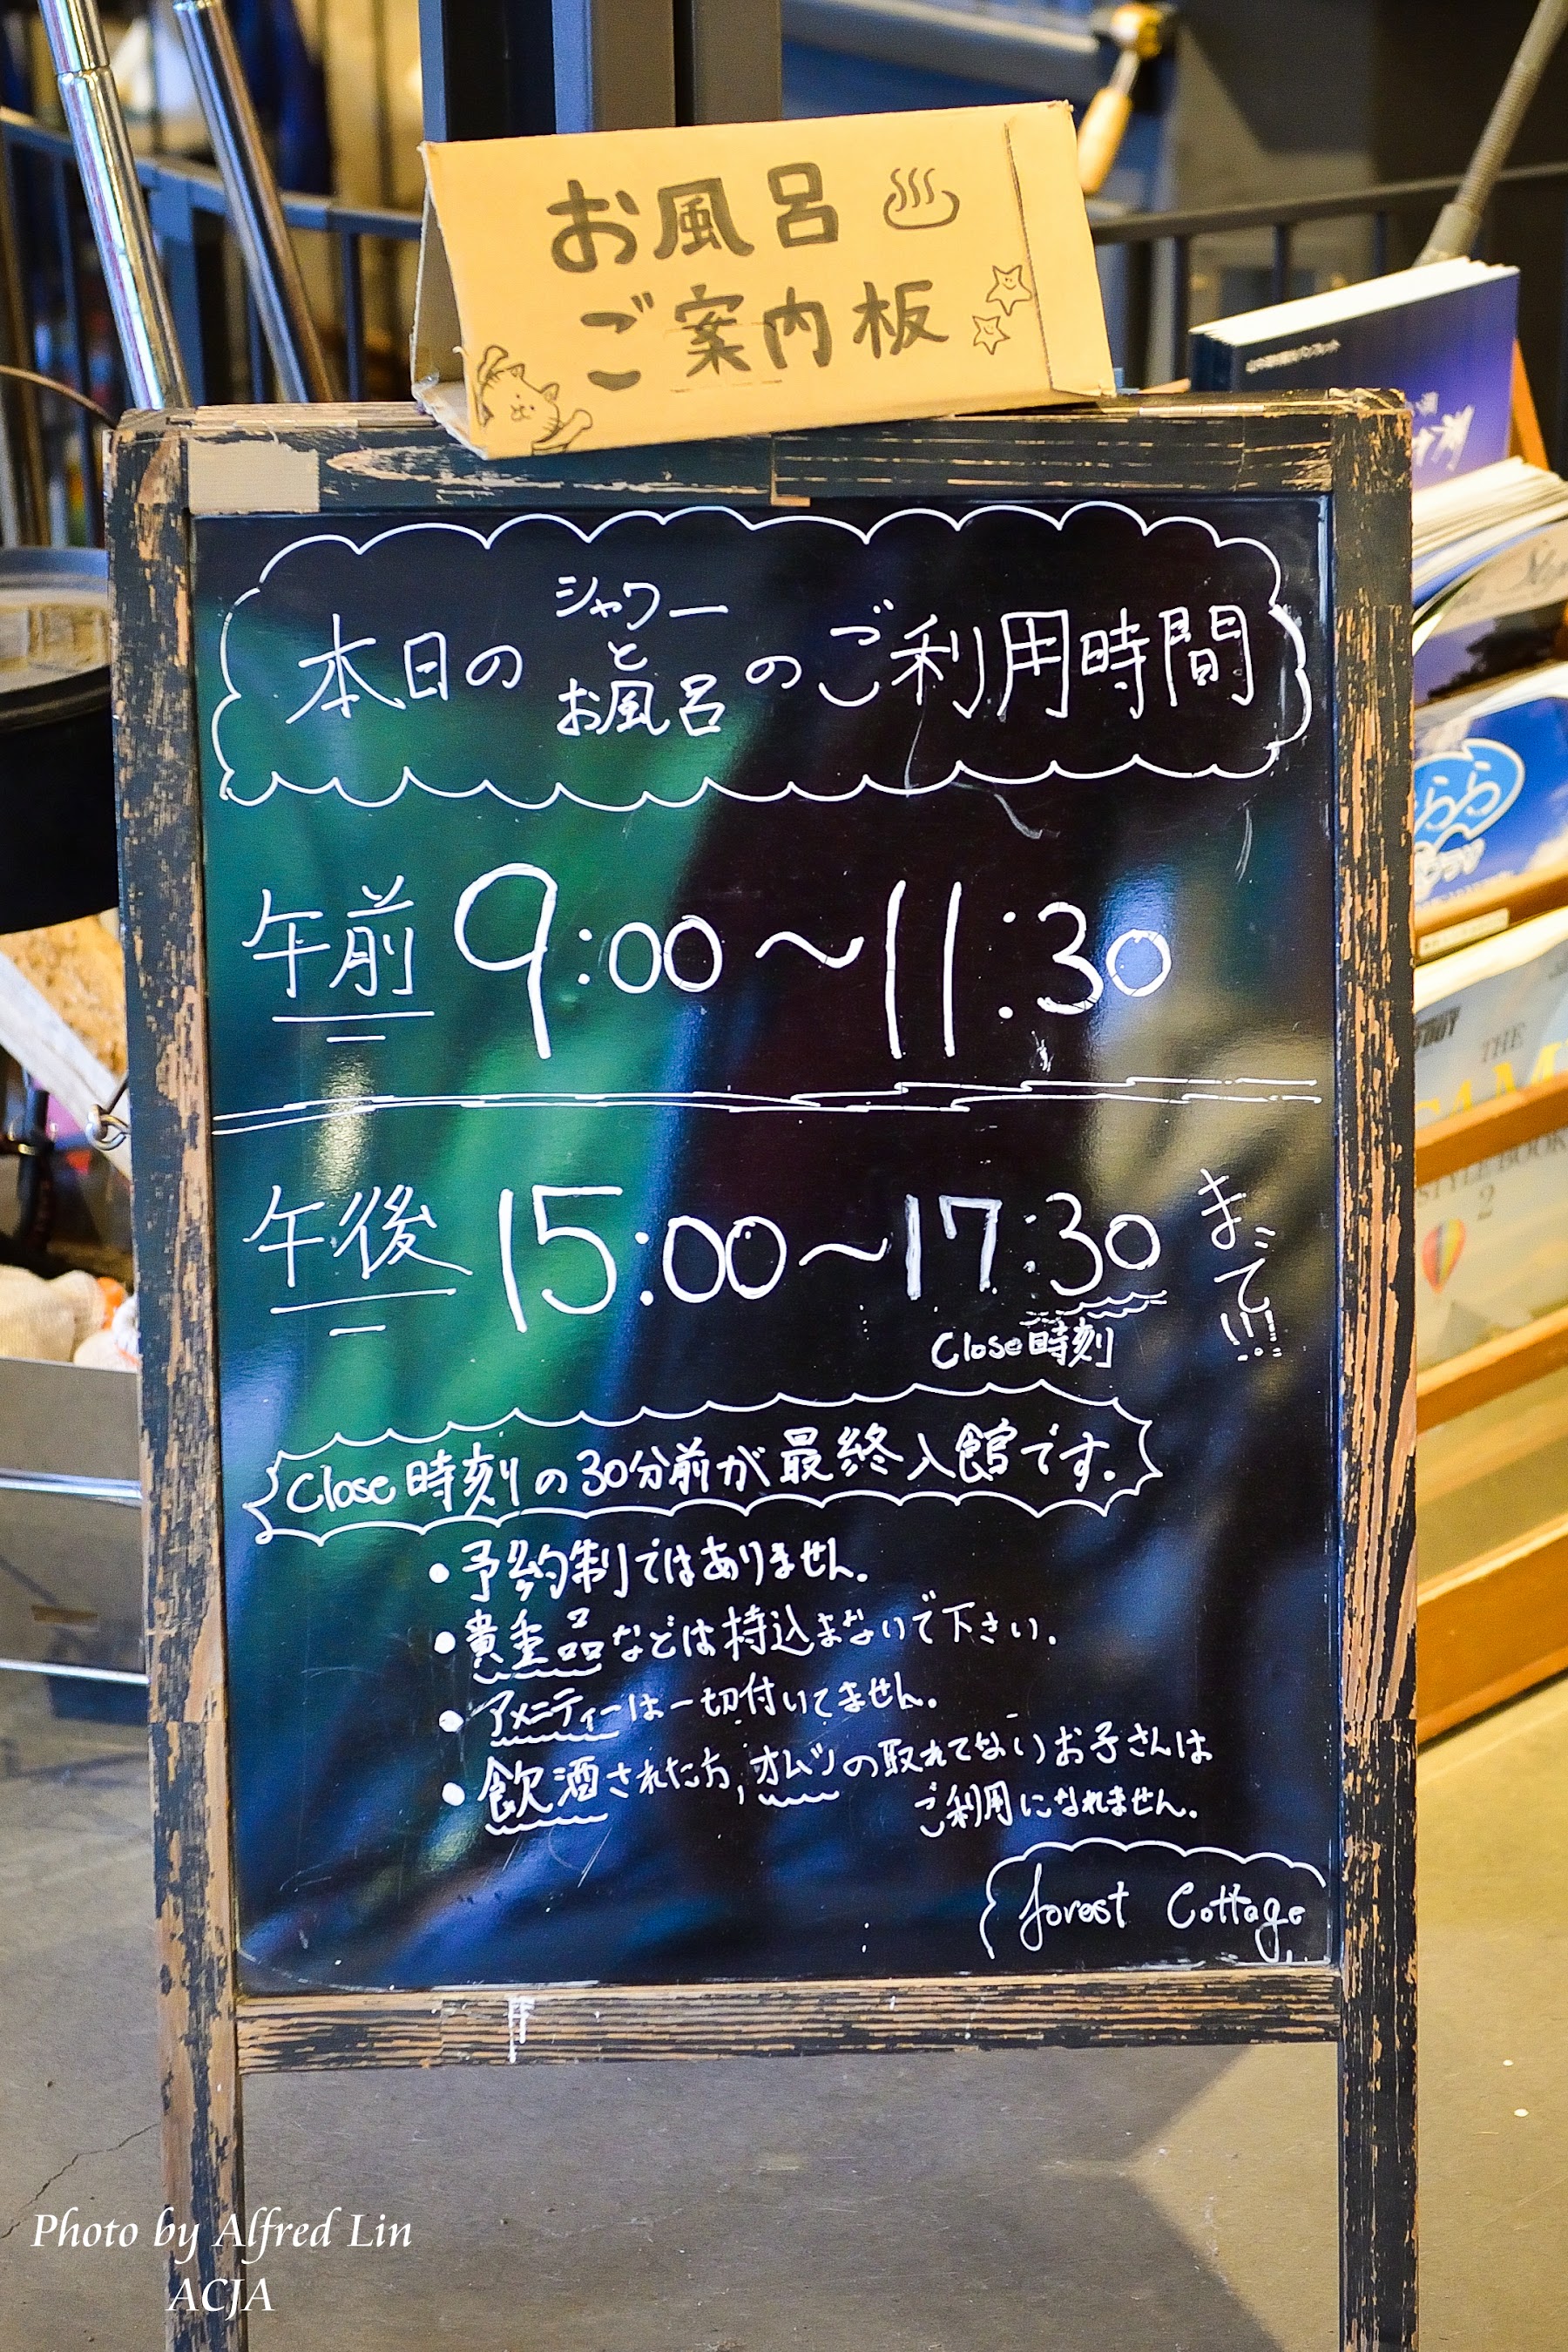 お風呂♨
ご案内板
本日のシャワーとお風呂のご利用時間
午前 9:00〜11:30
午後 15:00〜17:30 まで!!!
Close時刻
Close時刻の30分前が最終入館です.
・予約制ではありません.
・貴重品などは持込まないで下さい.
・アメニティーは一切付いてません.
・飲酒された方,オムツの取れてないお子さんは
ご利用になれません.
forest Cottage
THE
STYLE BOOK
2
Photo by Alfred Lin
ACJA